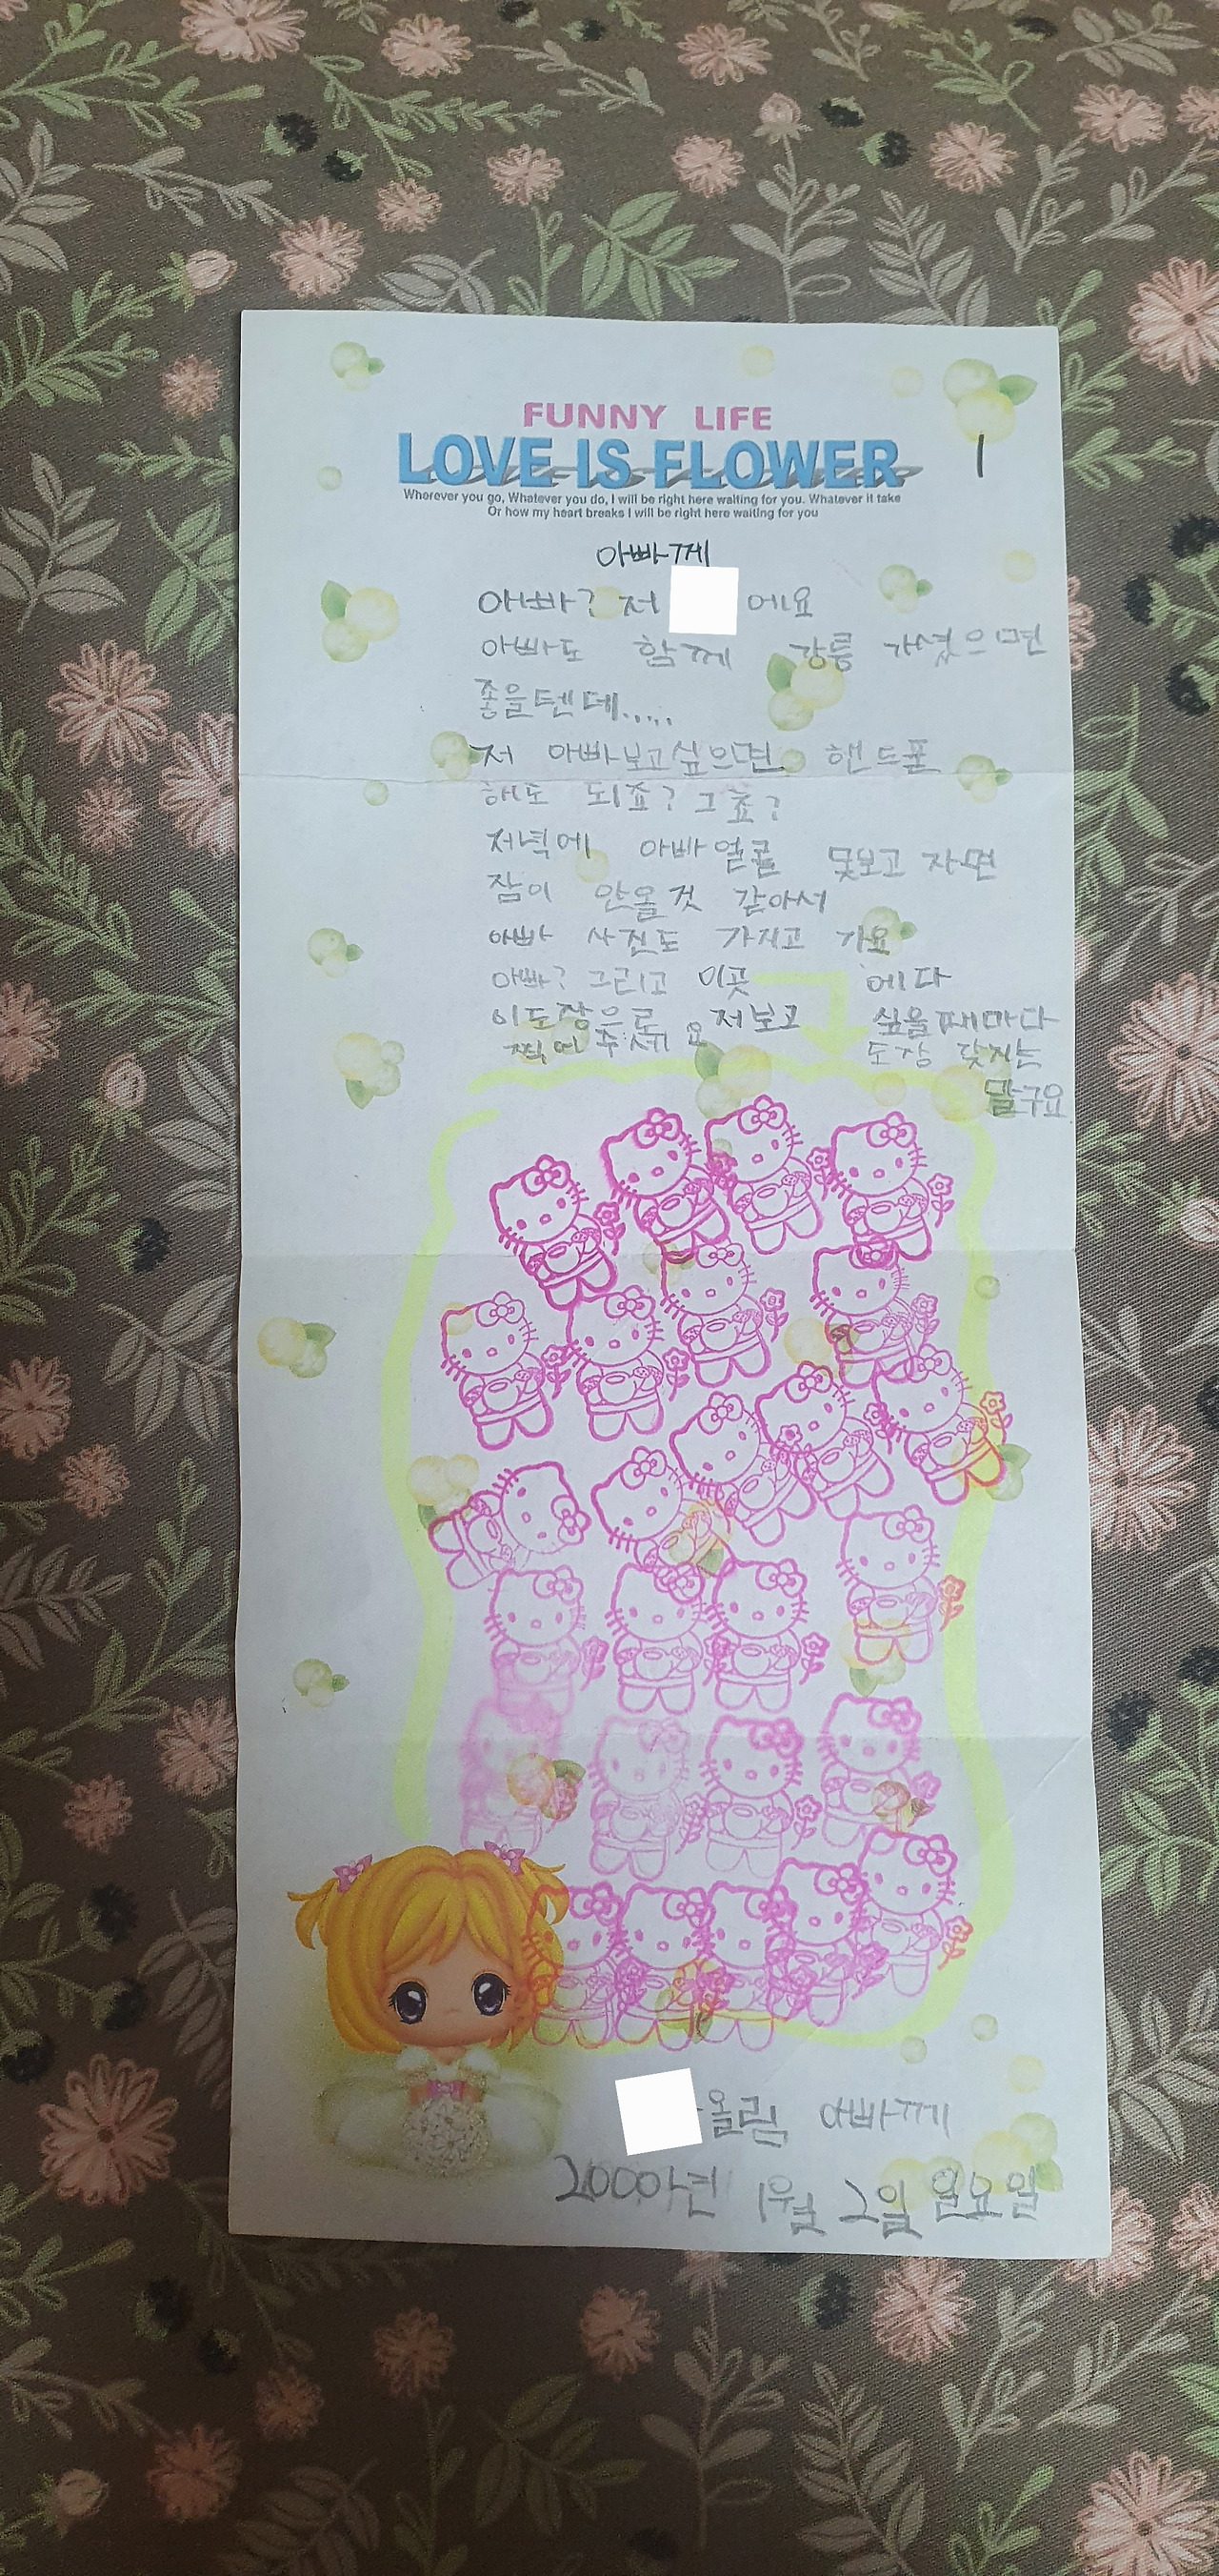 FUNNY LIFE
LOVE IS FLOWER
1
Wherever you go, Whatever you do, I will be right here waiting for you. Whatever it take
Or how my heart breaks I will be right here waiting for you
아빠께
아빠? 저 에요
아빠도 함께 강릉 가셨으면
좋을텐데.....
저 아빠보고싶으면 핸드폰
해도 되죠? 그쵸?
저녁에 아빠얼굴 못보고 자면
잠이 안올것 같아서
아빠 사진도 가지고 가요
아빠? 그리고 이곳 에다
이도장으로 저보고 싶을때마다
찍어주세요 도장 닺지는
말구요
올림 아빠께
2000년 1월 2일 일요일